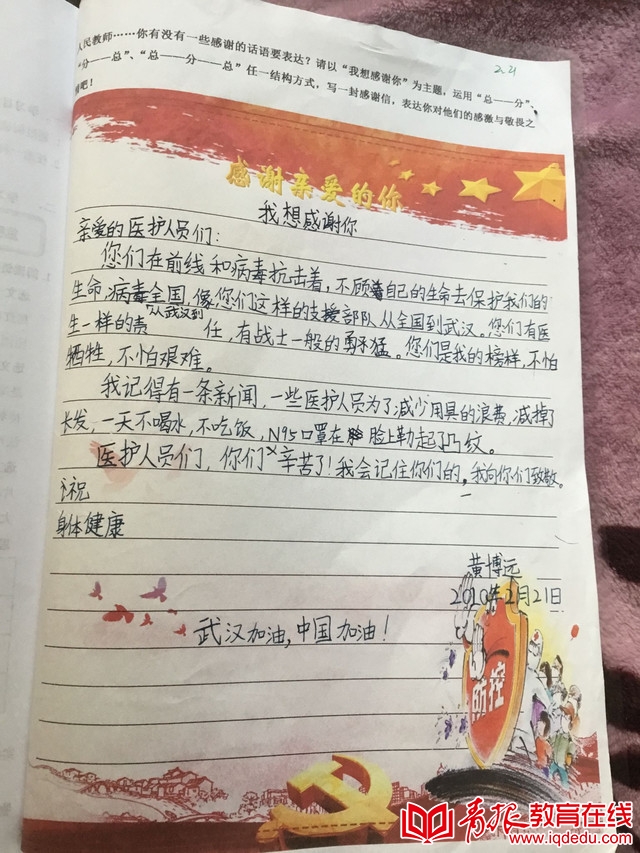 人民教师……你有没有一些感谢的话语要表达？请以“我想感谢你”为主题，运用“总——分”、
“分——总”、“总——分——总”任一结构方式，写一封感谢信，表达你对他们的感激与敬畏之
情吧！
2.21
感谢亲爱的你
我想感谢你
亲爱的医护人员们：
您们在前线和病毒抗击着，不顾自己的生命去保护我们的
生命。病毒全国，像您们这样的支援部队从全国到武汉。您们有医
从武汉到
生一样的责任，有战士一般的勇猛。您们是我的榜样，不怕
牺牲，不怕艰难。
我记得有一条新闻，一些医护人员为了减少用具的浪费，减掉了
长发，一天不喝水，不吃饭，N95口罩在脸上勒起了凹纹。
医护人员们，你们辛苦了！我会记住你们的，我向你们致敬。
祝
身体健康
黄博远
2010年2月21日
武汉加油，中国加油！
防控
青报教育在线
www.iqdedu.com